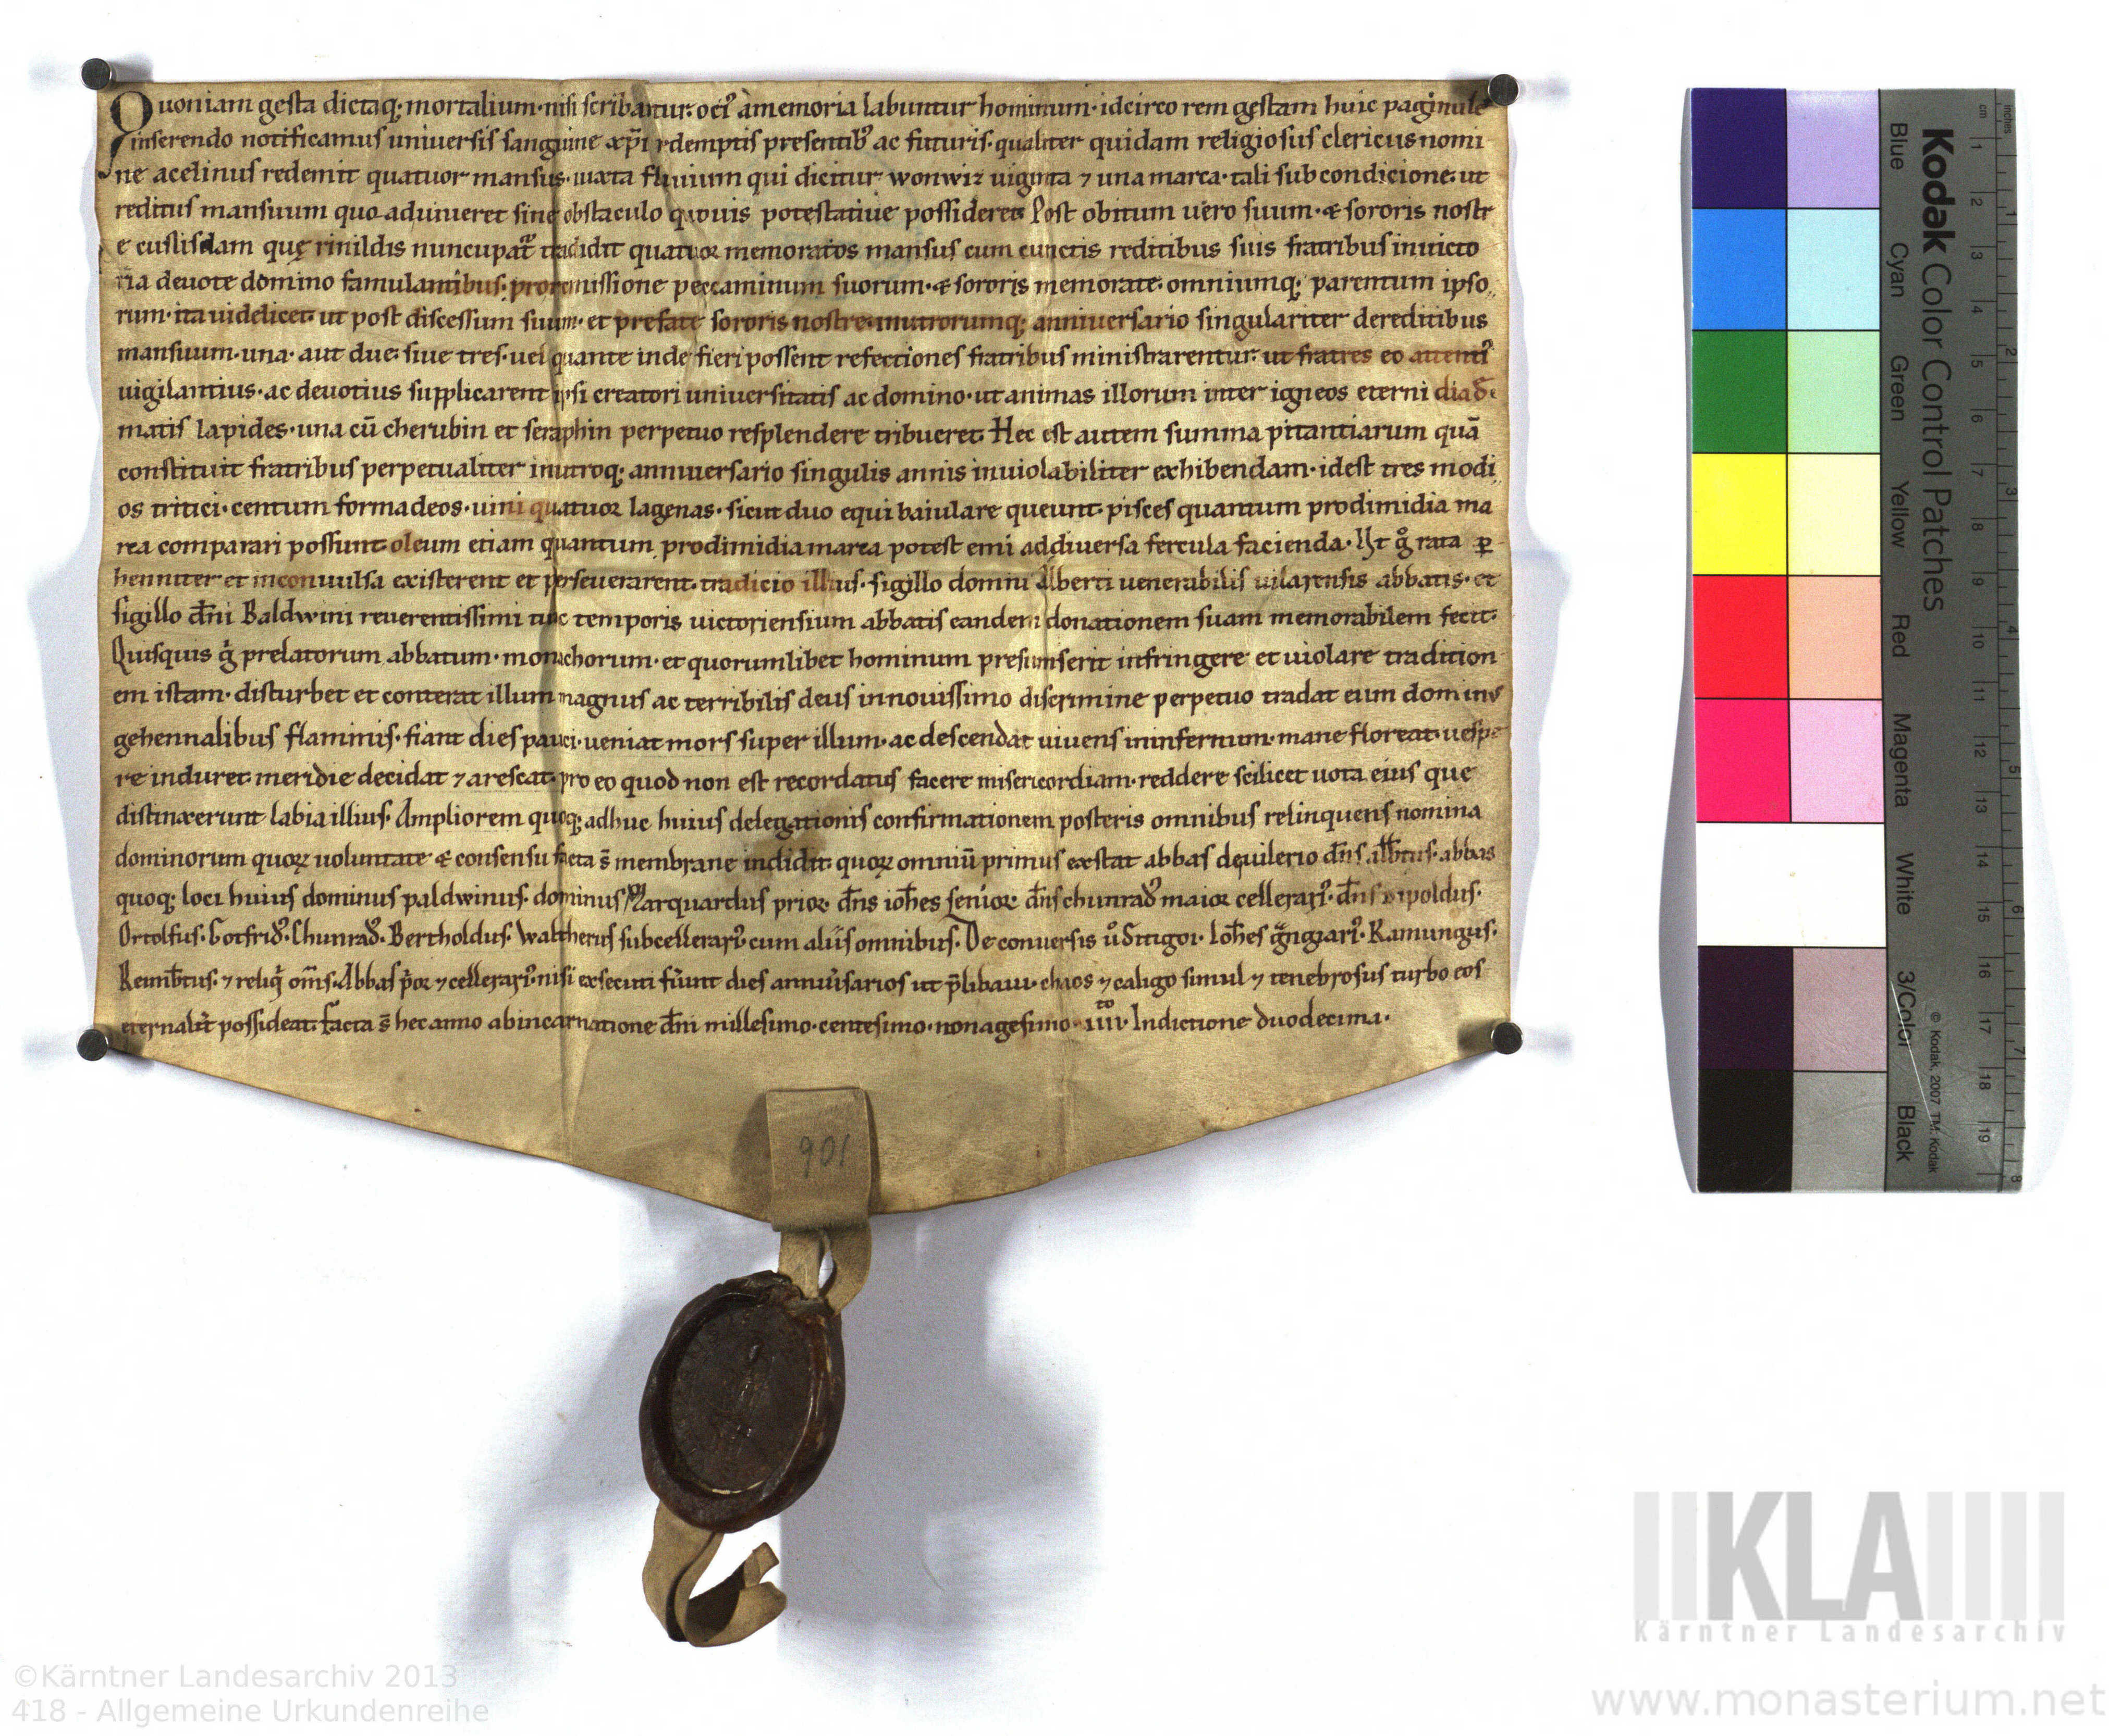 Quoniam gesta dictaq; mortalium· nisi scribantur· oci' a memoria labuntur hominum· idcirco rem gestam huic paginule
inserendo notificamus universis sanguine xp̄i redemptis presentib' ac futuris· qualiter quidam religiosus clericus nomi
ne acelinus redemit quatuor mansus· iuxta fluvium qui dicitur wonwiz viginta ⁊ una marca· tali sub condicione· ut
reditus mansuum quo adviveret sine obstaculo quovis potestative possideret· Post obitum vero suum· & sororis nostr
e cuslisdam quę rinildis nuncupat̄ tradidit quatuor memoratos mansus cum cunctis reditibus suis fratribus in victo
ria devote domino famulantibus· pro remissione peccaminum suorum· & sororis memorate· omniumq; parentum ipso
rum· ita videlicet· ut post discessum suum· et prefate sororis nostre· in utrorumq; anniversario singulariter de reditibus
mansuum· una· aut due· sive tres· vel quante inde fieri possent refectiones fratribus ministrarentur· ut fratres eo attenti'
vigilantius· ac devotius supplicarent ipsi creatori universitatis ac domino· ut animas illorum inter igneos eterni diade
matis lapides· una cū cherubin et seraphin perpetuo resplendere tribueret· Hec est autem summa pitantiarum quā
constituit fratribus perpetualiter in utroq; anniversario singulis annis inviolabiliter exhibendam· id est tres modi
os tritici· centum formadeos· vini quatuor lagenas· sicut duo equi baiulare queunt· pisces quantum pro dimidia ma
rca comparari possunt· oleum etiam quantum pro dimidia marca potest emi ad diversa fercula facienda· Ut g̊ rata ꝑ
henniter et inconvulsa existerent et perseverarent· tradicio illius· sigillo domini Alberti venerabilis vilarensis abbatis· et
sigillo dn̄i Baldwini reverentissimi tunc temporis victoriensium abbatis eandem donationem suam memorabilem fecit·
Quisquis g̊ prelatorum abbatum· monachorum· et quorumlibet hominum presumserit infringere et violare tradition
em istam· disturbet et conterat illum magnus ac terribilis deus in novissimo discrimine perpetuo tradat eum dominus
gehennalibus flaminis· fiant dies pauci· veniat mors super illum· ac descendat vivens in infernum· mane floreat· vespe
re induret· meridie decidat ⁊ arescat· pro eo quod non est recordatus facere misericordiam· reddere scilicet vota eius que
distinxerunt labia illius· Ampliorem quoq; adhuc huius delegationis confirmationem posteris omnibus relinquens nomina
dominorum quoꝝ voluntate & consensu facta ē membrane indidit· quoꝝ omniū primus exstat abbas de vilerio dn̄s alb̄tus· abbas
quoq; loci huius dominus paldwinus· dominus Marquardus prior· dn̄s ioh̄es senior· dn̄s chunrad' maior cellerari'· dn̄s dipoldus·
Ortolfus· Gotfrid'· Chunrad'· Bertholdus· Waltherus subcellerari' cum aliis omnibus· De conversis Ioh̄es grangiari'· Ramungus·
Reimb̄tus· ⁊ reliq' om̄s· Abbas p'or ⁊ cellerari' nisi exsecuti fu'int dies anniv'sarios ut p̄libavi· chaos ⁊ caligo simul ⁊ tenebrosus turbo eos
eternalit' possideat· facta ē hec anno ab incarnatione dn̄i millesimo· centesimo· nonagesimo· iiii^to· Indictione duodecima·
901
Kodak Color Control Patches
Blue Cyan Green Yellow Red Magenta White 3/Color Black
© Kodak, 2007 TM: Kodak
inches 1 2 3 4 5 6 7 8
cm 1 2 3 4 5 6 7 8 9 10 11 12 13 14 15 16 17 18 19
KLA
Kärntner Landesarchiv
©Kärntner Landesarchiv 2013
418 - Allgemeine Urkundenreihe
www.monasterium.net